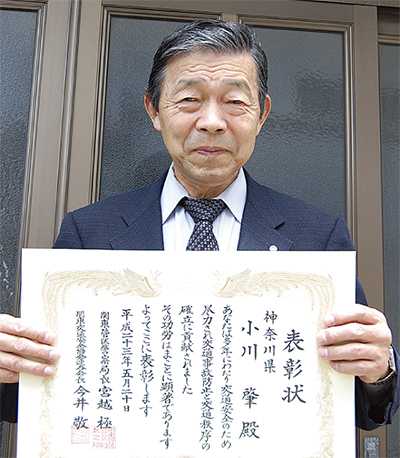 表彰状
神奈川県
小川 肇 殿
あなたは多年にわたり交通安全のため
尽力され交通事故防止と交通秩序の
確立に貢献されました
その功労はまことに顕著であります
よってここに表彰します
平成二十三年五月二十日
関東管区警察局長 宮越 極
関東交通安全協会連合会長 今井 敬